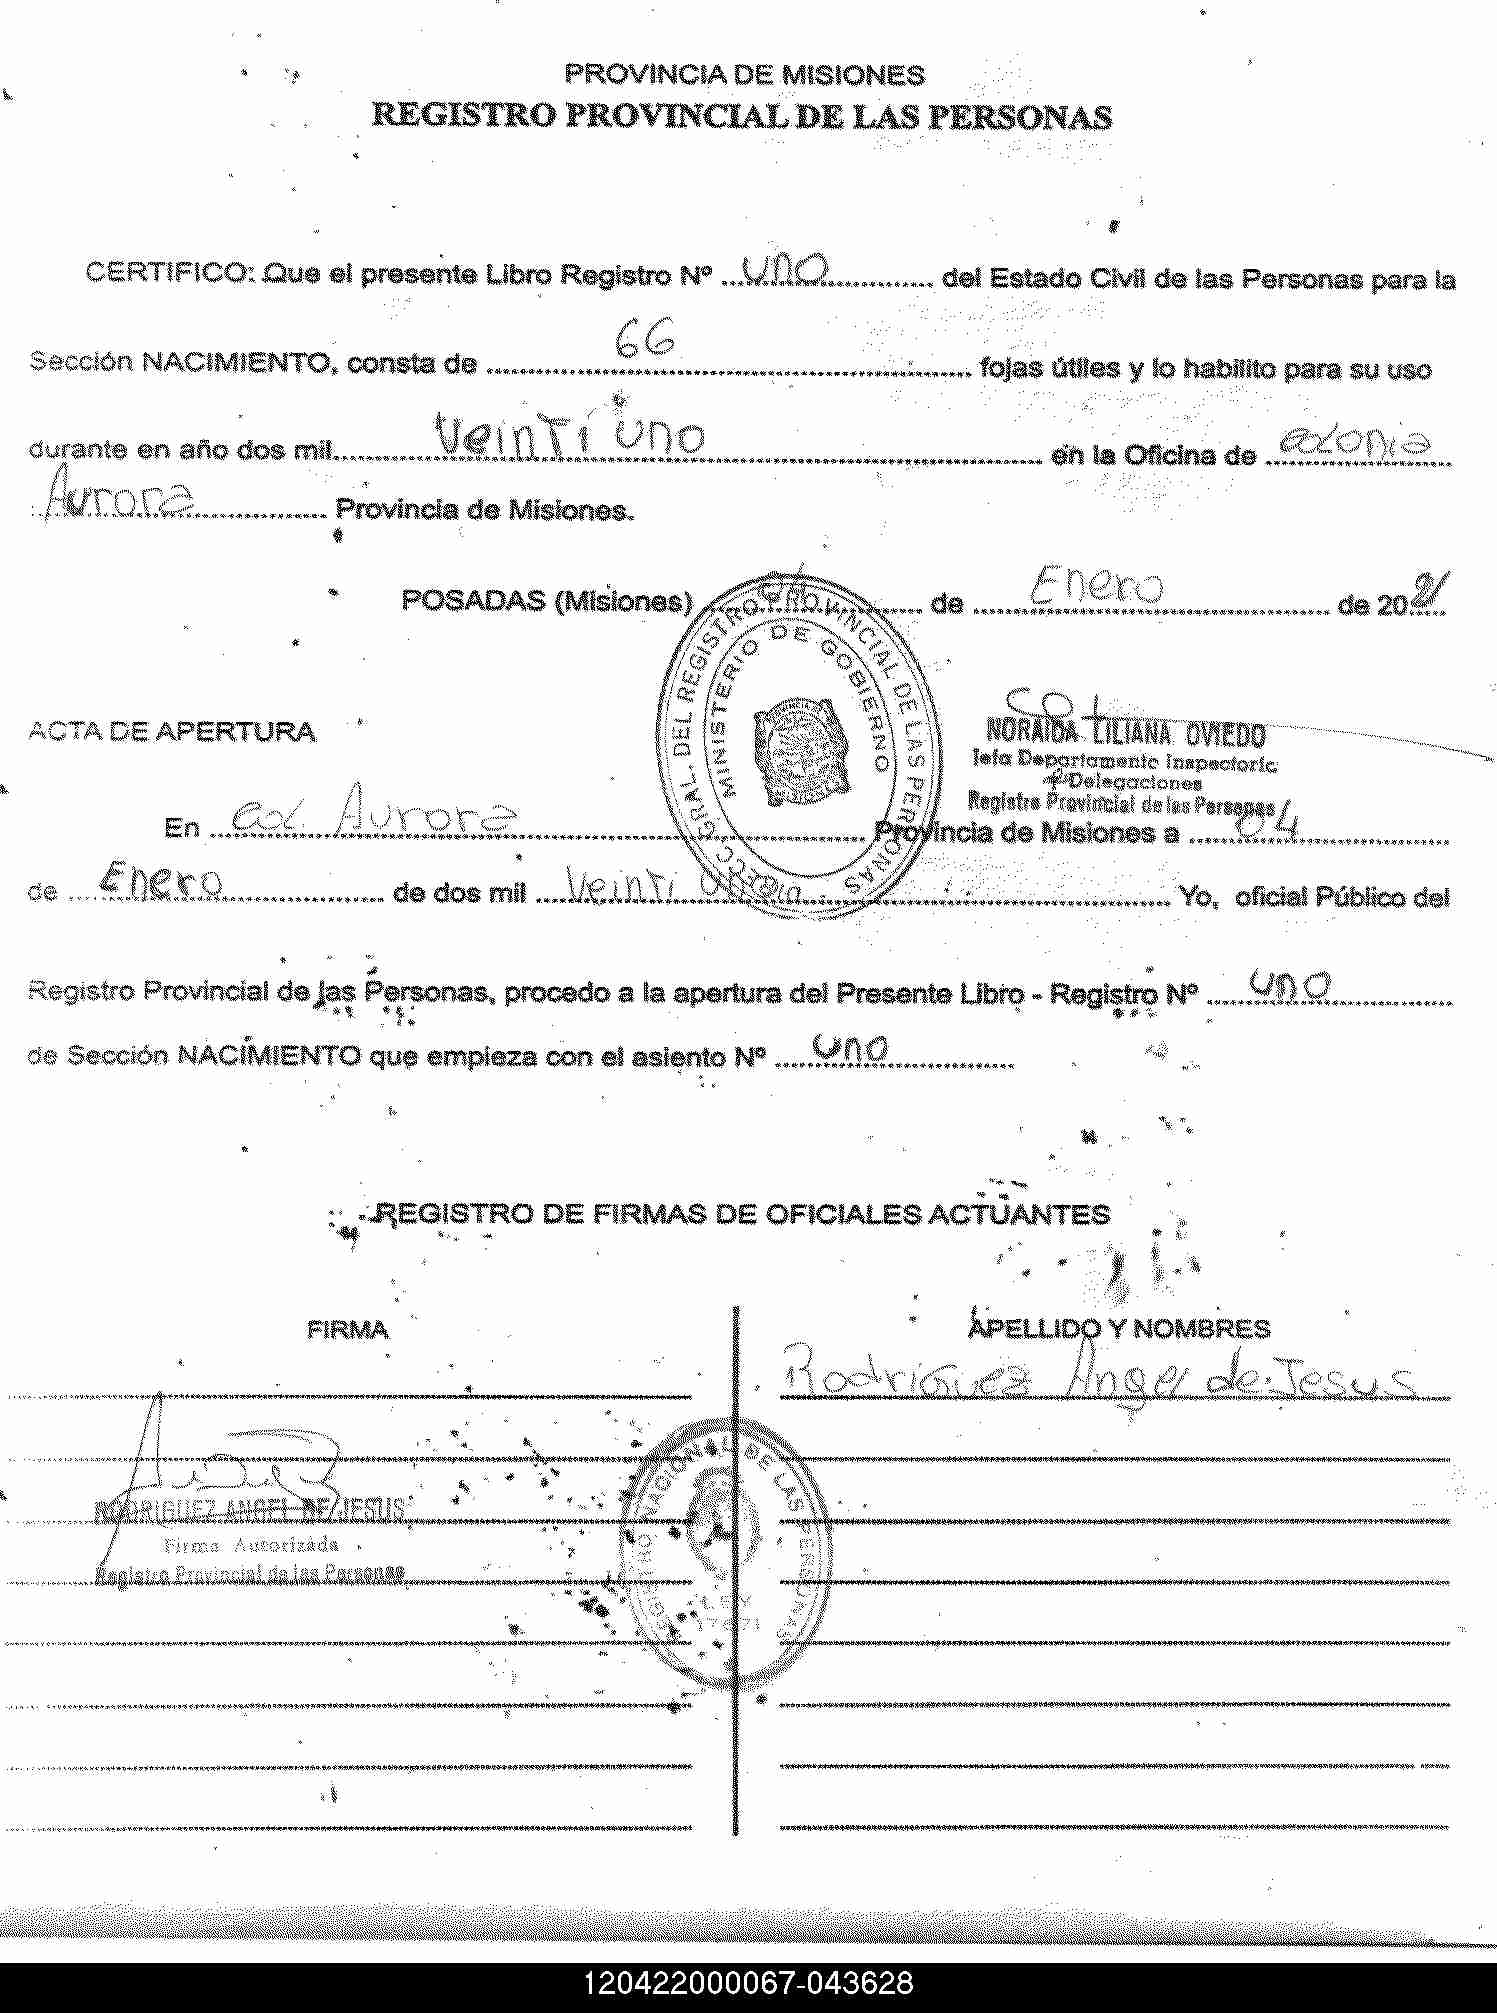 PROVINCIA DE MISIONES
REGISTRO PROVINCIAL DE LAS PERSONAS
CERTIFICO: Que el presente Libro Registro Nº ...UNO............. del Estado Civil de las Personas para la
Sección NACIMIENTO, consta de ........66........ fojas útiles y lo habilito para su uso
durante en año dos mil........Veinti uno........ en la Oficina de ..colonia..
..Aurora.............. Provincia de Misiones.
POSADAS (Misiones) ........ de ......Enero........ de 20.21..
DIREC. GRAL. DEL REGISTRO PROVINCIAL DE LAS PERSONAS
MINISTERIO DE GOBIERNO
NORAIDA LILIANA OVIEDO
Jefa Departamento Inspectoria
Delegaciones
Registro Provincial de las Personas
ACTA DE APERTURA
En ..col. Aurora........ Provincia de Misiones a ....04........
de ....Enero........ de dos mil ...Veinti uno........ Yo, oficial Público del
Registro Provincial de las Personas, procedo a la apertura del Presente Libro - Registro Nº ....uno........
de Sección NACIMIENTO que empieza con el asiento Nº ....uno........
REGISTRO DE FIRMAS DE OFICIALES ACTUANTES
FIRMA
APELLIDO Y NOMBRES
Rodriguez Angel de Jesus
RODRIGUEZ ANGEL DE JESUS
Firma Autorizada
Registro Provincial de las Personas
REGISTRO NACIONAL DE LAS PERSONAS
LEY
17671
120422000067-043628